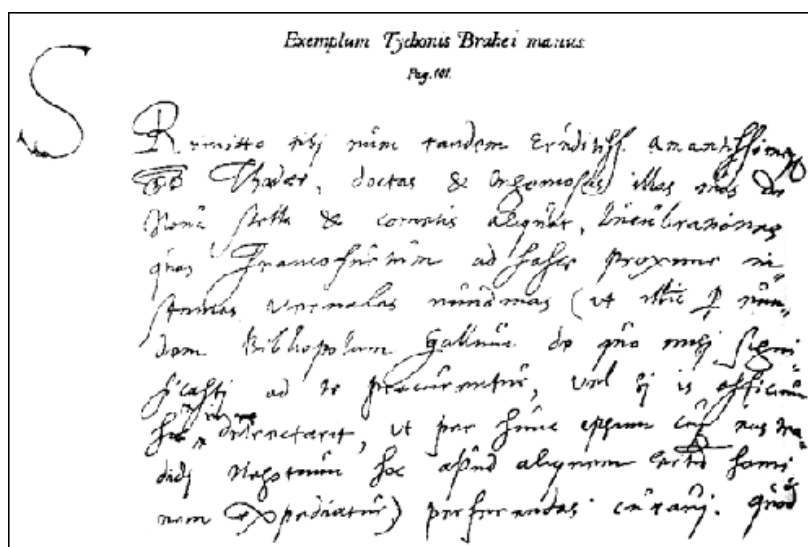 Exemplum Tychonis Brahei manus
Pag. 101.
S
Remitto tibj nũm tandem Erũditiss. Amantissimeq̃
Thadæe, doctas & Ingeniosas illas tũas de
Nouâ stella & cometis aliqũot, lũcũbrationes
qũas Francofũrtũm ad hasce proxime in
stantes vernales nũndinas (ut illic p
dem Bibliopolam Gallũm de qũo mihj signi
ficasti ad te procũrentũr, vel sj is officiũm
hoc detrectaret, ut per hũnc ipsum cũj eas tra
didj Negotiũm hoc apũd aliqũem certũ homi
nem Expediatũr) perferendas cũrauj. qũod